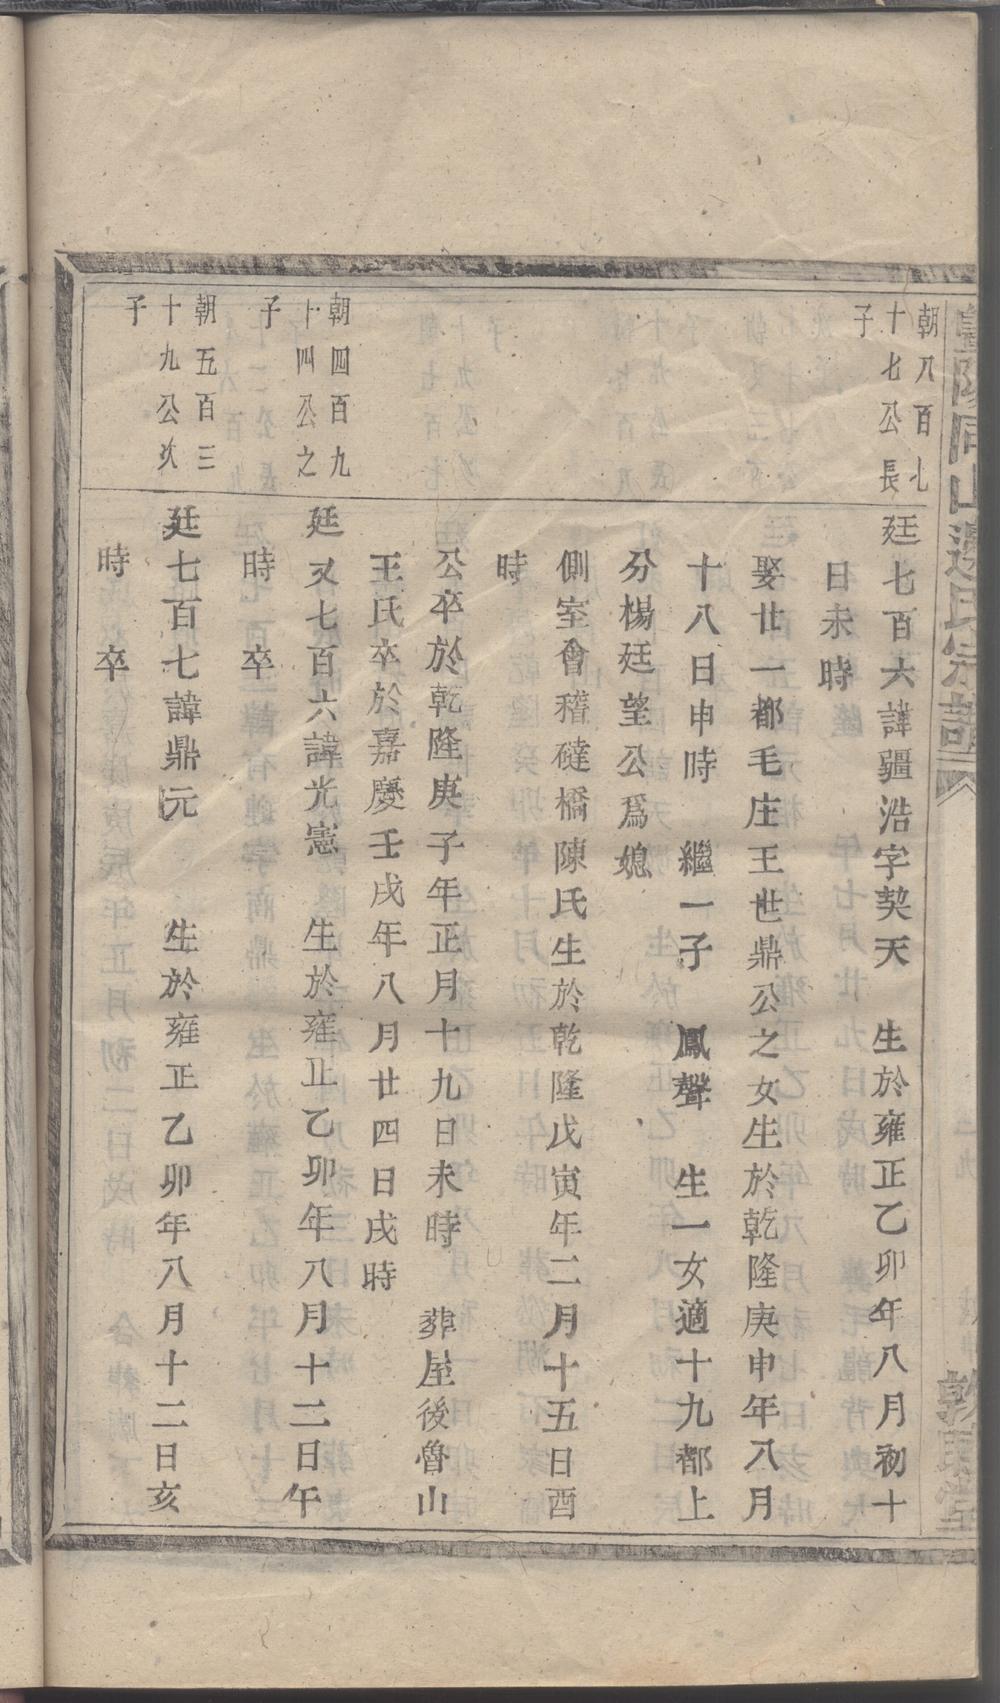 朝八百七
十七公長
子
廷七百六諱疆浩字契天　生於雍正乙卯年八月初十
日未時
娶廿一都毛庄王世鼎公之女生於乾隆庚申年八月
十八日申時　繼一子　鳳聲　生一女適十九都上
分楊廷望公爲媳
側室會稽䃮橋陳氏生於乾隆戊寅年二月十五日酉
時
公卒於乾隆庚子年正月十九日未時　葬屋後魯山
王氏卒於嘉慶壬戌年八月廿四日戌時
朝四百九
十四公之
子
廷又七百六諱光憲　生於雍正乙卯年八月十二日午
時卒
朝五百三
十九公次
子
廷七百七諱鼎元　生於雍正乙卯年八月十二日亥
時卒